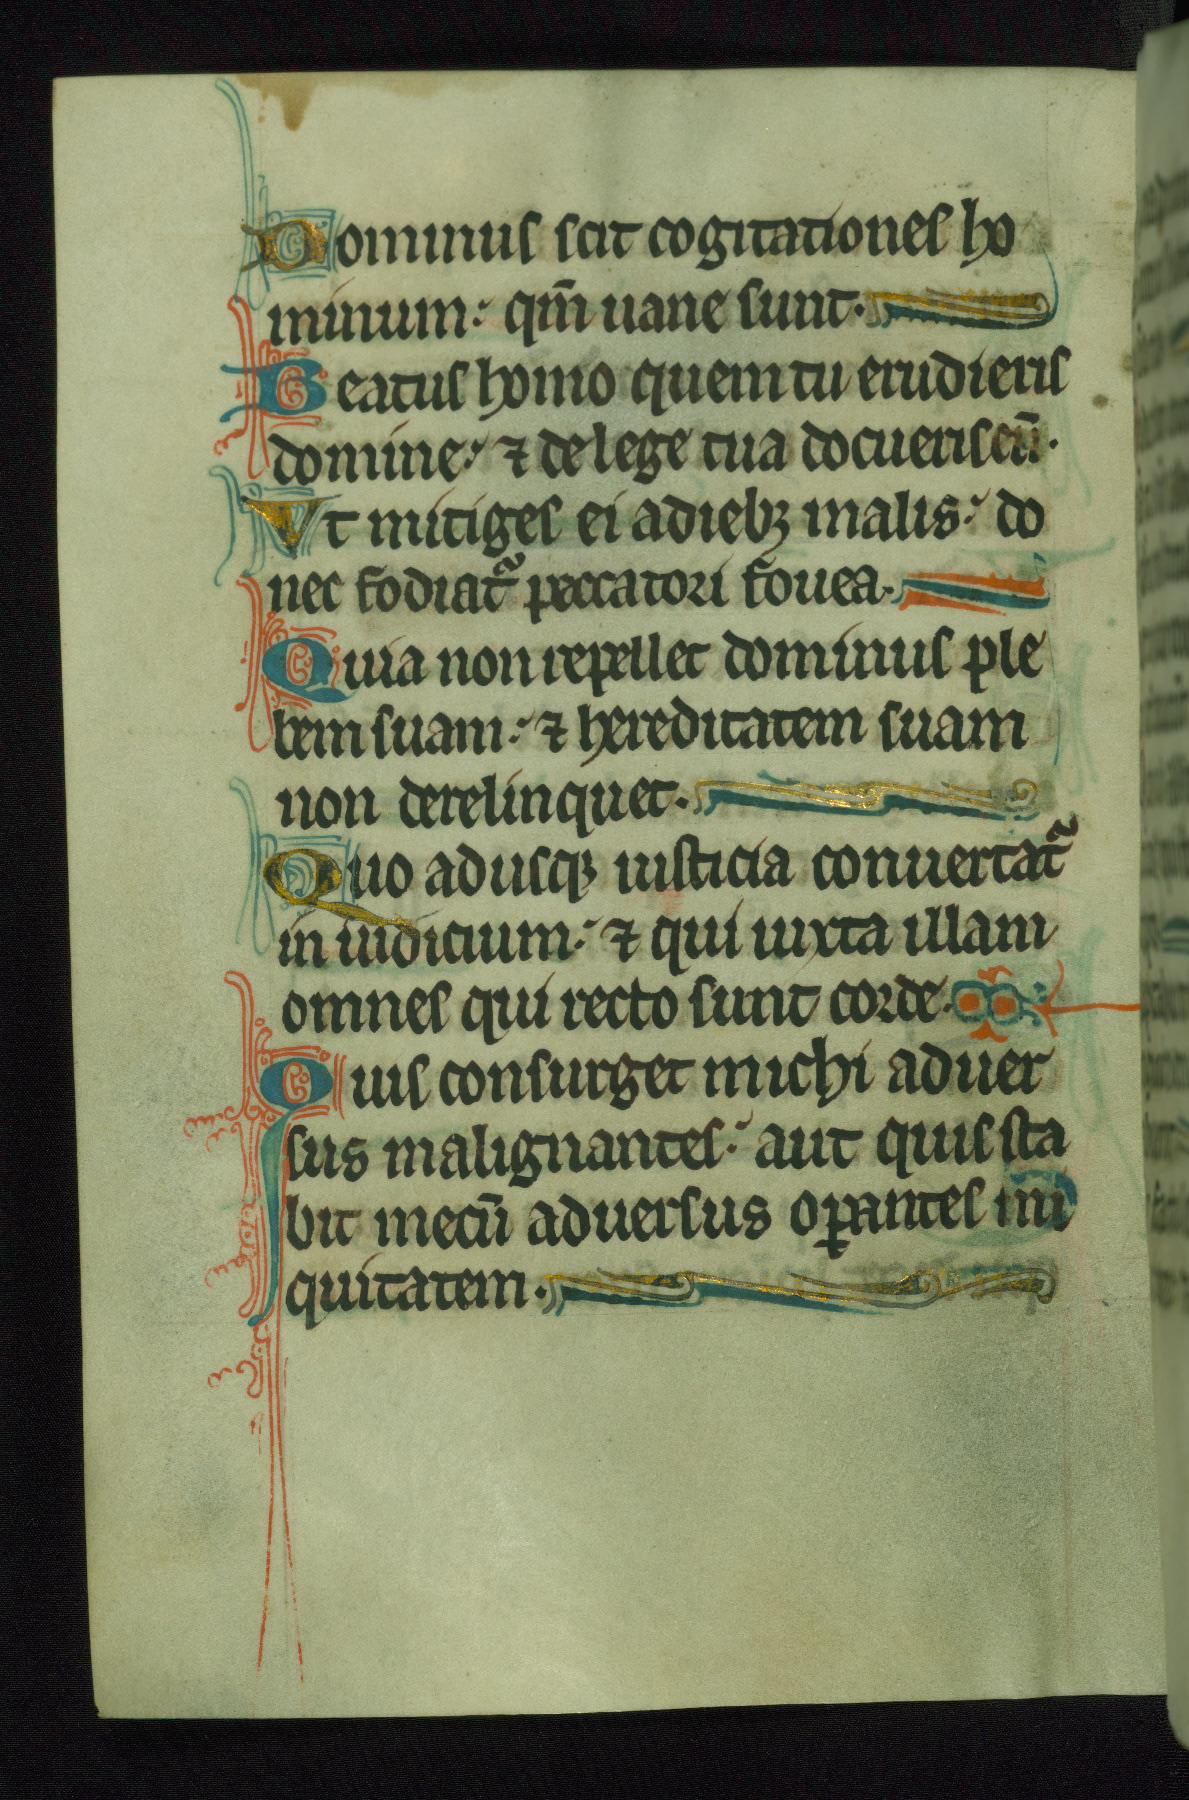 Dominus scit cogitationes ho
minum: qm̄ uane sunt.
Beatus homo quem tu erudieris
domine: ⁊ de lege tua docueris eū.
Vt mitiges ei a diebꝫ malis: do
nec fodiat᷑ peccatori fouea.
Quia non repellet dominus ple
bem suam: ⁊ hereditatem suam
non derelinquet.
Quo adusqꝫ iusticia conuertat᷑
in iudicium: ⁊ qui iuxta illam
omnes qui recto sunt corde.
Quis consurget michi aduer
sus malignantes: aut quis sta
bit mecū aduersus oꝑantes ini
quitatem.